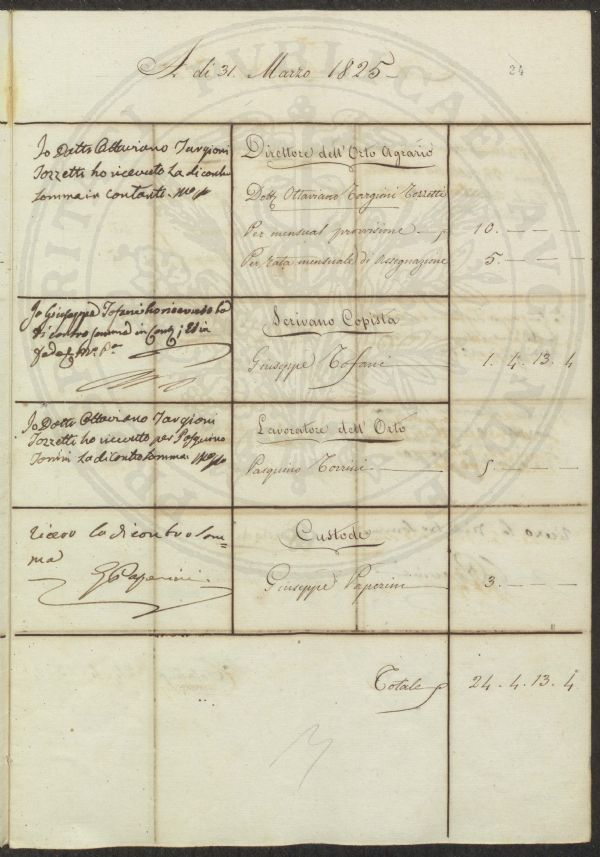 A di 31. Marzo 1825
24
Io Dottr Ottaviano Targioni
Tozzetti ho ricevuto La di contro
somma in contanti. Mo po
Direttore dell'Orto Agrario
Dottr Ottaviano Targini Tozzetti
Per mensual provvisione 10. — — —
Per rata mensuale di Assegnazione 5. — — —
Io Giuseppe Tofani ho ricevuto la
di contro somma in Conti; Ed in
fede Mo. Po
Scrivano Copista
Giuseppe Tofani 1. 4. 13. 4
Io Dottr Ottaviano Targioni
Tozzetti ho ricevuto per Pasquino
Torrini La di Contro Somma Mo po
Lavoratore dell'Orto
Pasquino Torrini 5. — — —
ricevo la di contro som=
ma
G Paperini
Custode
Giuseppe Paperini 3. — — —
Totale 24. 4. 13. 4